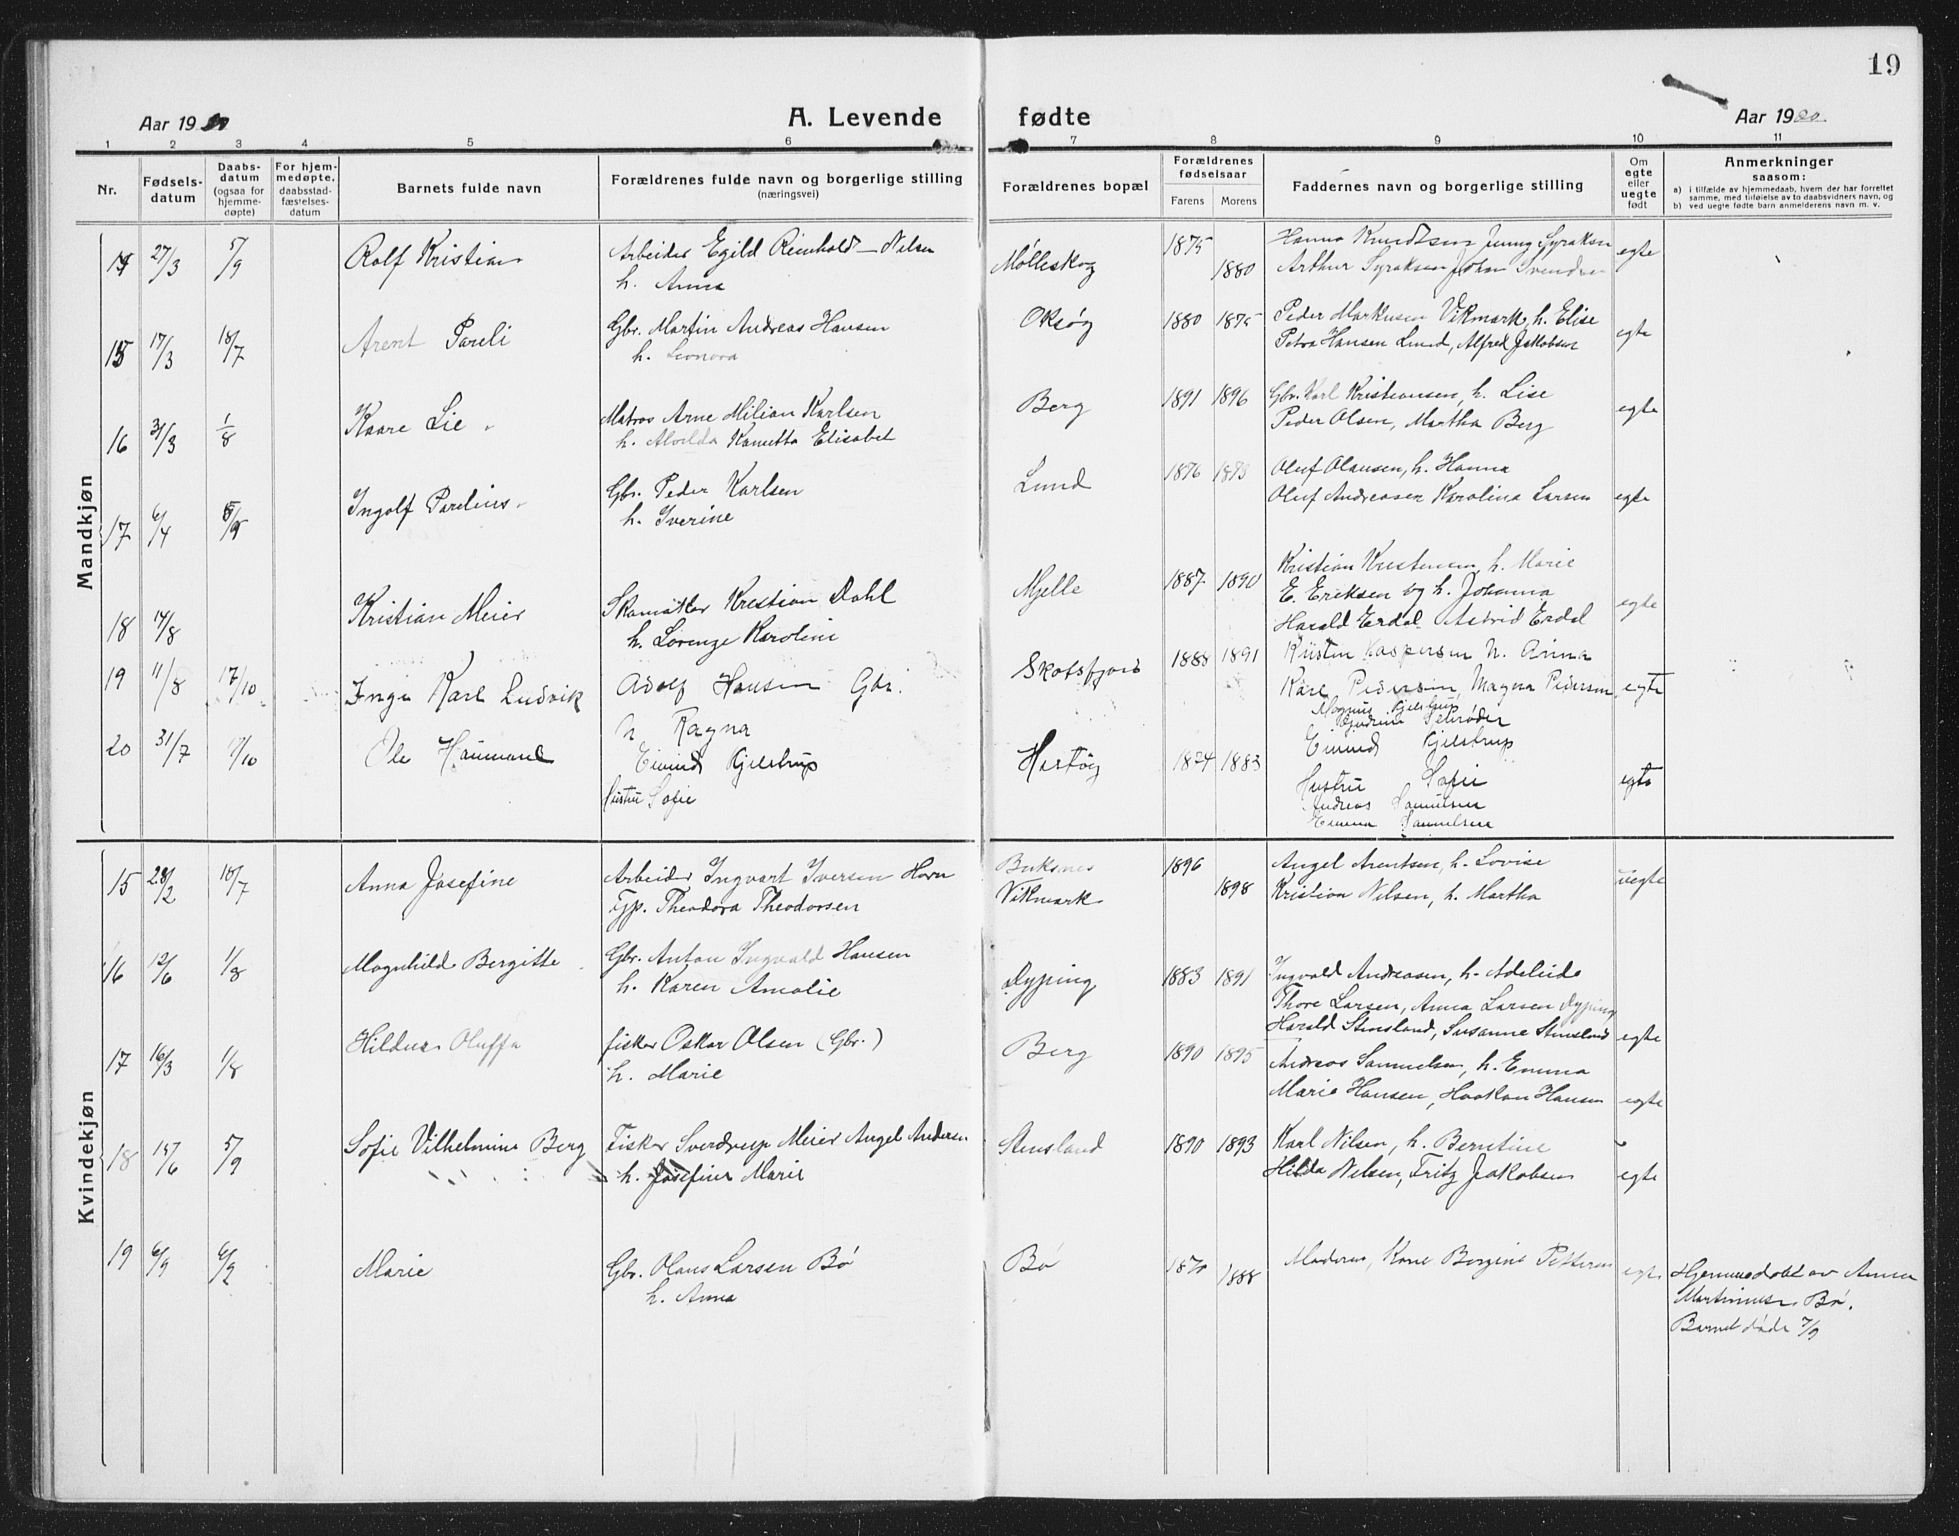 19
Aar 19
A. Levende fødte
Aar 1920
1 2 3 4 5 6 7 8 9 10 11
Nr.
Fødsels-datum
Daabs-datum (ogsaa for hjemme-døpte)
For hjem-medøpte, daabsstad-fæstelses-datum
Barnets fulde navn
Forældrenes fulde navn og borgerlige stilling (næringsvei)
Forældrenes bopæl
Forældrenes fødselsaar
Farens Morens
Faddernes navn og borgerlige stilling
Om egte eller uegte født
Anmerkninger saasom:
a) i tilfælde av hjemmedaab, hvem der har forrettet samme, med tilføielse av to daabsvidners navn, og
b) ved uegte fødte barn anmelderens navn m. v.
Mandkjøn
14 27/3 5/9 Rolf Kristian Arbeider Egild Reinholdt Nilsen Mølleskog 1875 Hanna Knudtsen Jenny Syraksen egte
h. Anna 1880 Arthur Syraksen Johan Svendsen
15 17/3 18/7 Arent Pareli Gbr. Martin Andreas Hansen Oksøy 1880 1875 Peder Markusen Vikmark, h. Elise egte
h. Leonora Petra Hansen Lund, Alfred Jakobsen
16 31/3 1/8 Kaare Lie Matros Arne Milian Karlsen Berg 1891 1896 Gbr. Karl Kristiansen, h. Lise egte
h. Alvilda Kanutta Elisabet Peder Olsen, Martha Berg
17 6/4 5/9 Ingolf Parelius Gbr. Peder Karlsen Lund 1876 1873 Oluf Olausen, h. Hanna egte
h. Iverine Oluf Andreasen Karolina Larsen
18 14/8 Kristian Meier Skomaker Kristian Dahl Mjelle 1887 1890 Kristian Kristensen, h. Marie egte
h. Lorenze Karoline E. Eriksen og h. Johanna
Harald Erdal Astrid Erdal
19 11/8 17/10 Inge Karl Ludvik Adolf Hansen Gbr. Skotsfjord 1888 1891 Kristen Kaspersen h. Anna egte
h Ragna Kåre Pedersen, Magna Pedersen
Magnus Kjelstrup
Schrøder
20 31/7 /10 Ole Haumand Eivind Kjelstrup Hestøy 1883 Eivind Kjelstrup egte
Hustru Sofie Hustru Sofie
Andreas Samuelsen
Emma Samuelsen
Kvindekjøn
15 28/2 18/7 Anna Josefine Arbeider Ingvart Iversen Havn Buksnes 1896 Angel Arentsen, h. Lovise uegte
Theodora Theodorsen Vikmark 1898 Kristian Nilsen, h. Martha
16 12/6 1/8 Magnhild Bergitte Gbr. Anton Ingvald Hansen Dyping 1883 1891 Ingvald Andreasen, h. Adeleide
h. Karen Amalie Thore Larsen, Anna Larsen Dyping
Harald Stensland, Susanne Stensland egte
17 16/3 1/8 Hildur Oluffa fisker Oskar Olsen (Gbr.) Berg 1890 1895 Andreas Samuelsen, h. Emma
h. Marie Marie Hansen, Haakon Hansen egte
18 15/6 5/9 Sofie Vilhelmine Berg Fisker Sverdrup Meier Angel Andersen Stensland 1890 1893 Karl Nilsen, h. Berntine
h. Josefine Marie Hilda Nilsen, Fritz Jakobsen egte
19 6/9 6/9 Marie Gbr. Olaus Larsen Bø Bø 187 Moderen, Kone Bergine Pettersen egte Hjemmedøbt av Anna
h. Anna 1888 Martinusen Bø.
Barnet døde 7/9